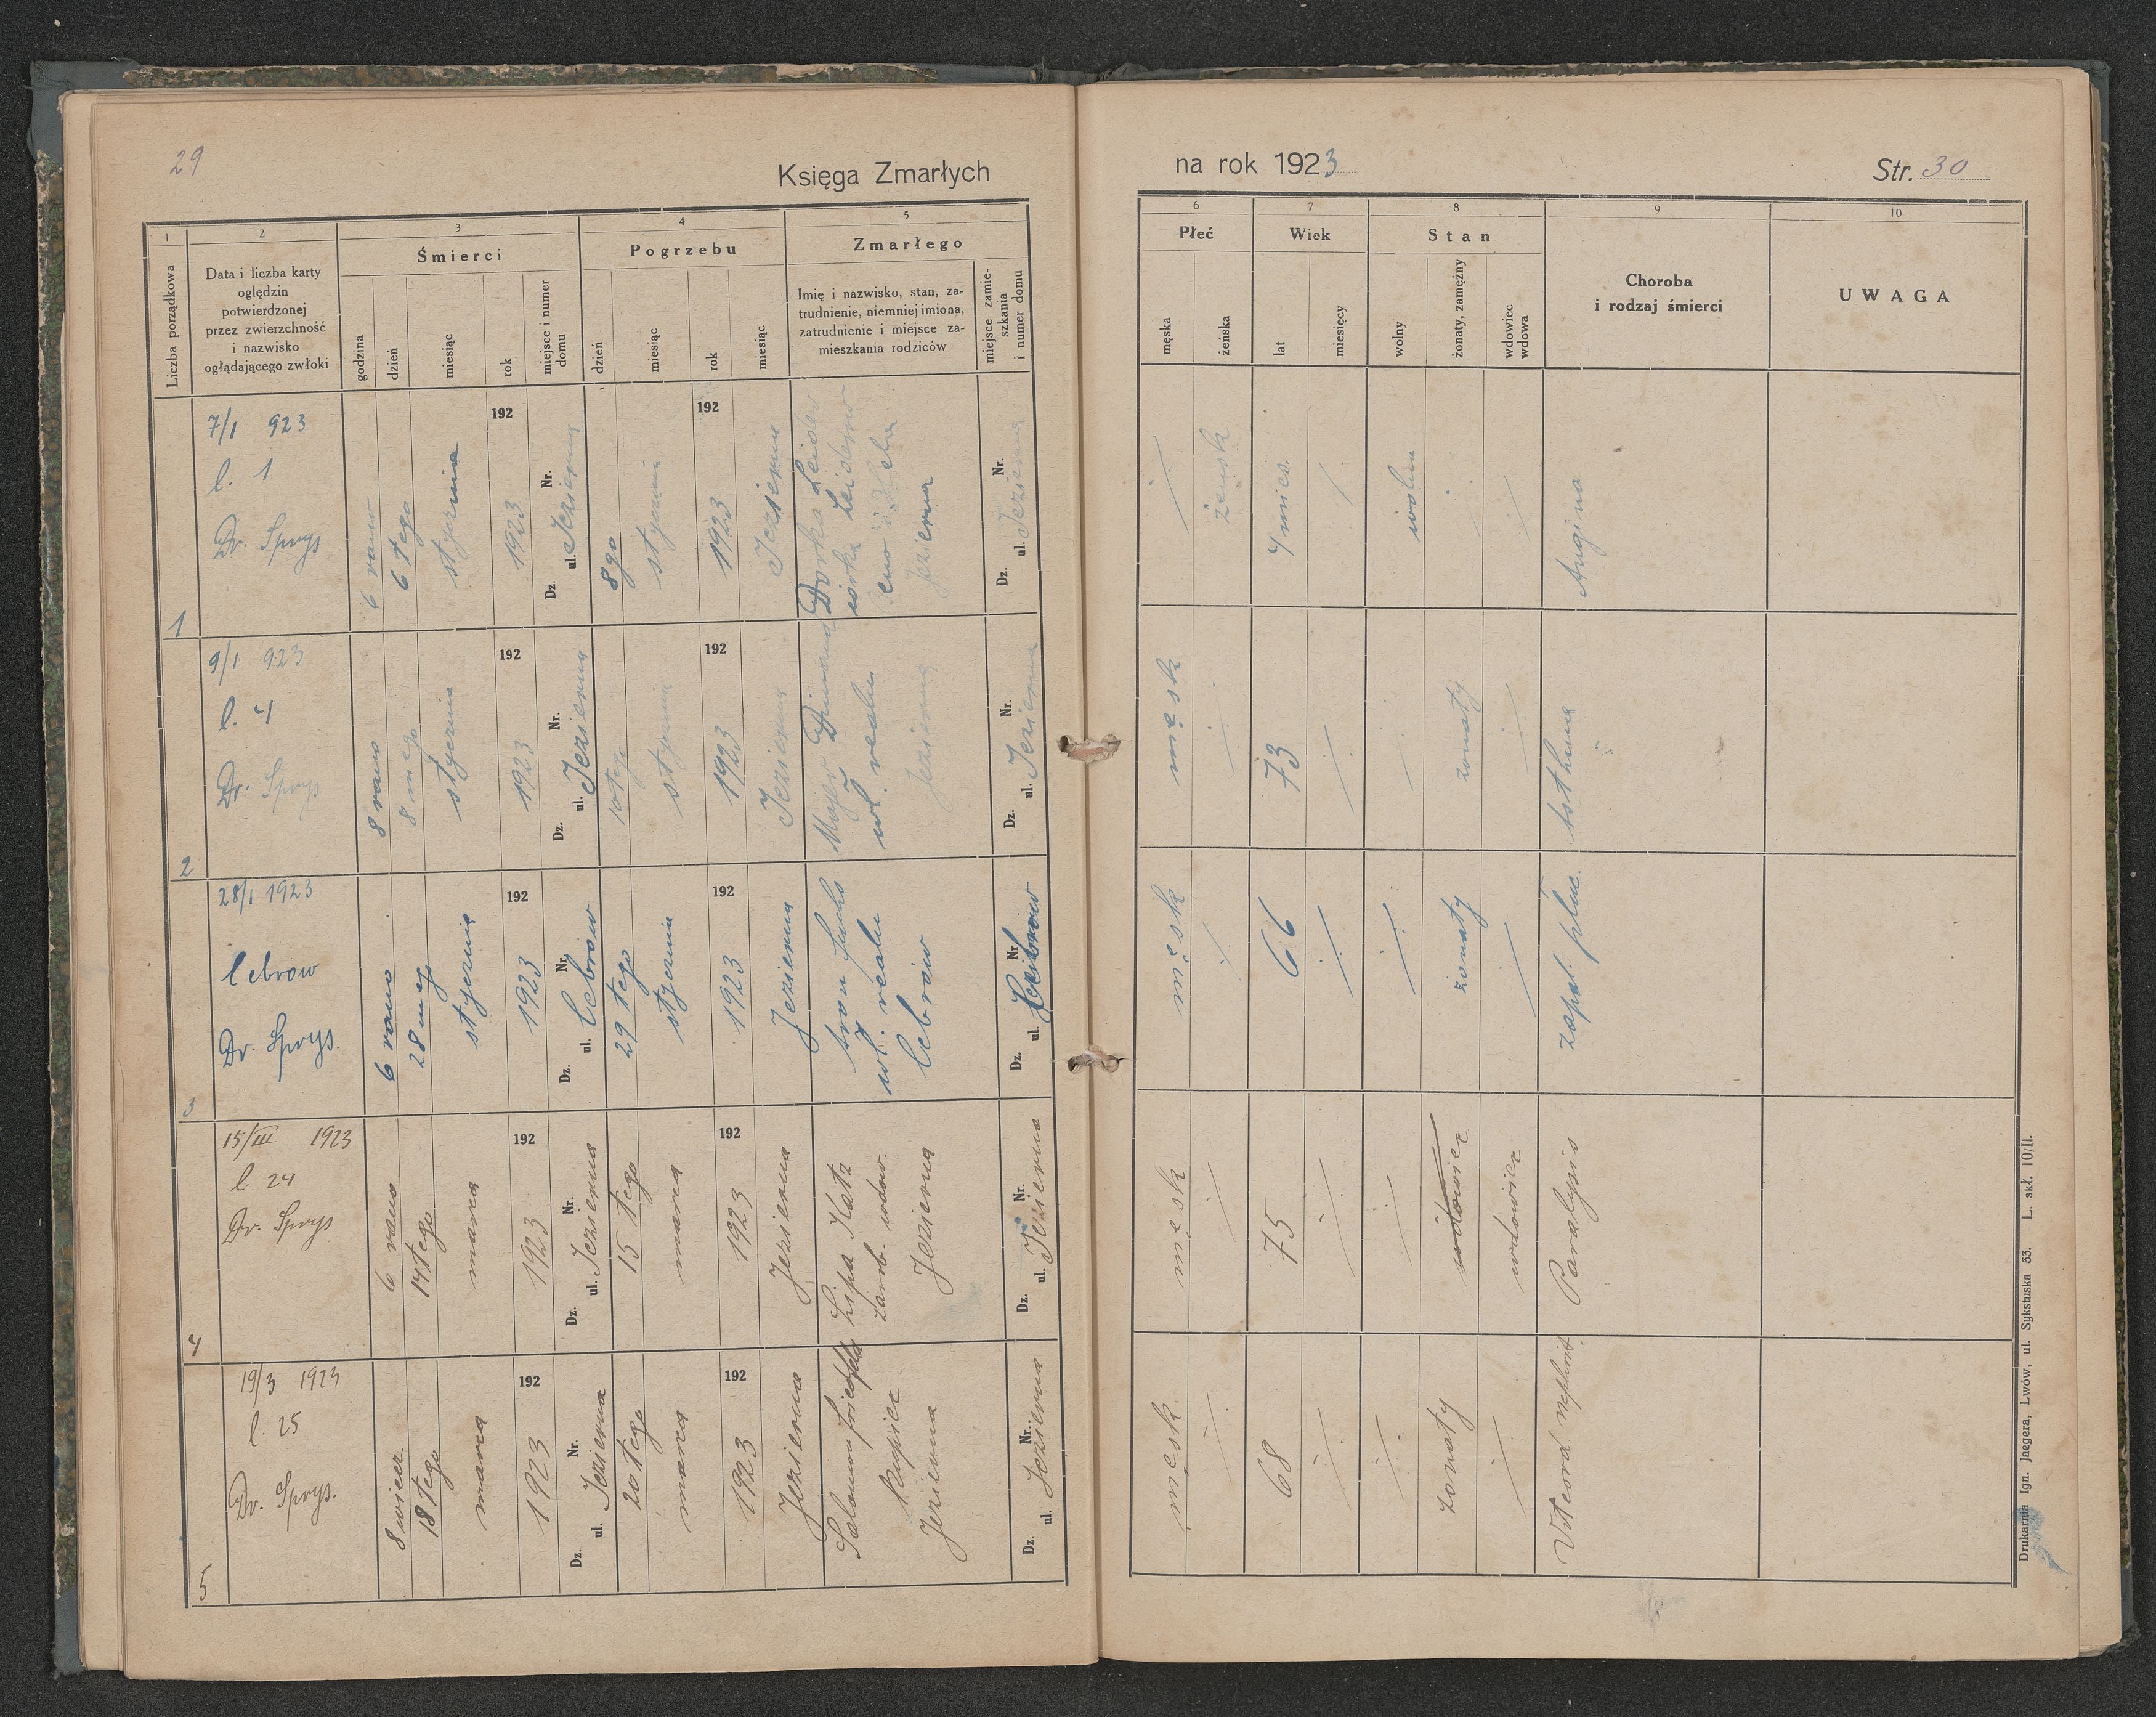 29
Księga Zmarłych
1
2
3
4
5
Liczba porządkowa
Data i liczba karty
oględzin
potwierdzonej
przez zwierzchność
i nazwisko
oglądającego zwłoki
Śmierci
godzina
dzień
miesiąc
rok
miejsce i numer
domu
Pogrzebu
dzień
miesiąc
rok
miesiąc
Zmarłego
Imię i nazwisko, stan, za-
trudnienie, niemniej imiona,
zatrudnienie i miejsce za-
mieszkania rodziców
miejsce zamie-
szkania
i numer domu
1
7/1 923
l. 1
Dr. Sprys
6 rano
6 tego
stycznia
192
1923
Dz. Nr.
ul. Jezierna
8go
stycznia
192
1923
Jezierna
Dorka
córka
Jezierna
Dz. Nr.
ul. Jezierna
2
9/1 923
l. 4
Dr. Sprys
8 rano
8 mego
stycznia
192
1923
Dz. Nr.
ul. Jezierna
10 tego
stycznia
192
1923
Jezierna
Majer
wł. realn
Jezierna
Dz. Nr.
ul. Jezierna
3
28/1 1923
Cebrow
Dr. Sprys.
6 rano
28 mego
stycznia
192
1923
Dz. Nr.
ul. Cebrow
29 tego
stycznia
192
1923
Jezierna
Fuchs
wł. realn
Cebrów
Dz. Nr.
ul. Cebrów
4
15/III 1923
l. 24
Dr. Sprys
6 rano
14 tego
marca
192
1923
Dz. Nr.
ul. Jezierna
15 tego
marca
192
1923
Jezierna
Lipa Katz
zarb. wdow.
Jezierna
Dz. Nr.
ul. Jezierna
5
19/3 1923
l. 25
Dr. Sprys.
8 wiecz.
18 tego
marca
192
1923
Dz. Nr.
ul. Jezierna
20 tego
marca
192
1923
Jezierna
Salomon
Kupiec
Jezierna
Dz. Nr.
ul. Jezierna
na rok 1923
Str. 30
6
7
8
9
10
Płeć
męska
żeńska
Wiek
lat
miesięcy
Stan
wolny
żonaty, zamężny
wdowiec
wdowa
Choroba
i rodzaj śmierci
UWAGA
żeńsk
4 mies.
wolna
Angina
męsk
73
żonaty
Asthma
męsk
66
żonaty
zapal. płuc.
męsk
75
wdowiec
wdowiec
Paralysis
męsk
68
żonaty
Drukarnia Ign. Jaegera, Lwów, ul. Sykstuska 33. L. skł. 10/II.